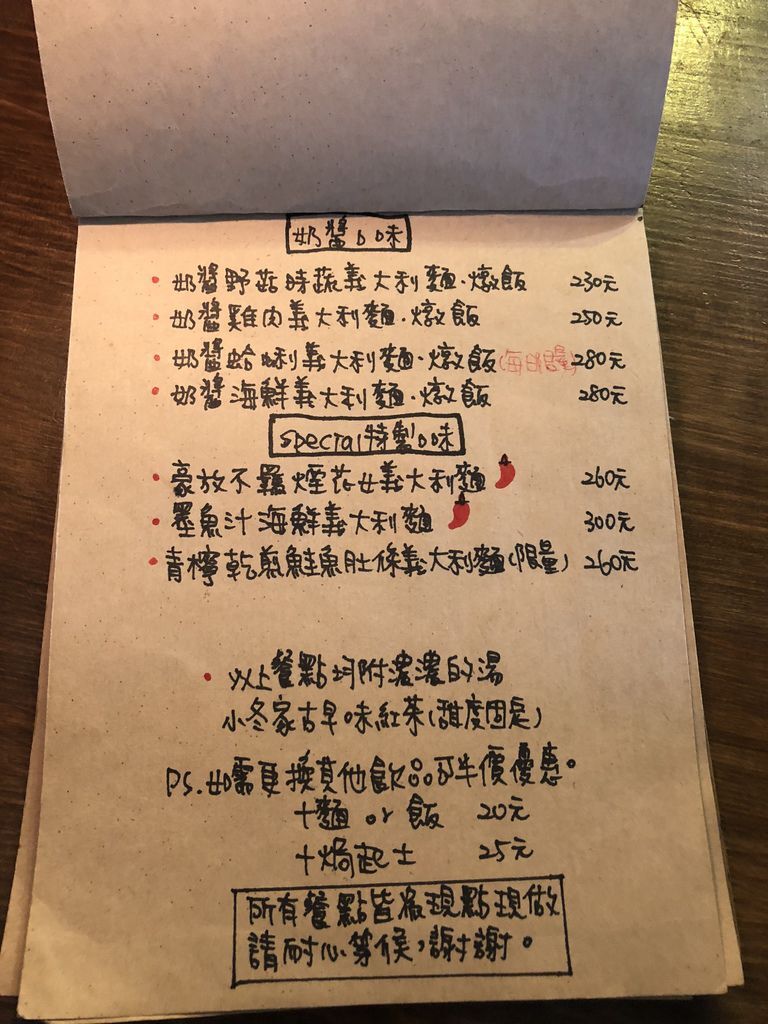 奶醬口味
• 奶醬野菇時蔬義大利麵·燉飯 230元
• 奶醬雞肉義大利麵·燉飯 250元
• 奶醬蛤蜊義大利麵·燉飯(每日限量) 280元
• 奶醬海鮮義大利麵·燉飯 280元
special特製口味
• 豪放不羈煙花女義大利麵 260元
• 墨魚汁海鮮義大利麵 300元
• 青檸乾煎鮭魚肚條義大利麵(限量) 260元
• 以上餐點均附濃濃的湯
小冬家古早味紅茶(甜度固定)
PS.如需更換其他飲品可半價優惠。
+麵 or 飯 20元
+焗起士 25元
所有餐點皆為現點現做
請耐心等候，謝謝。